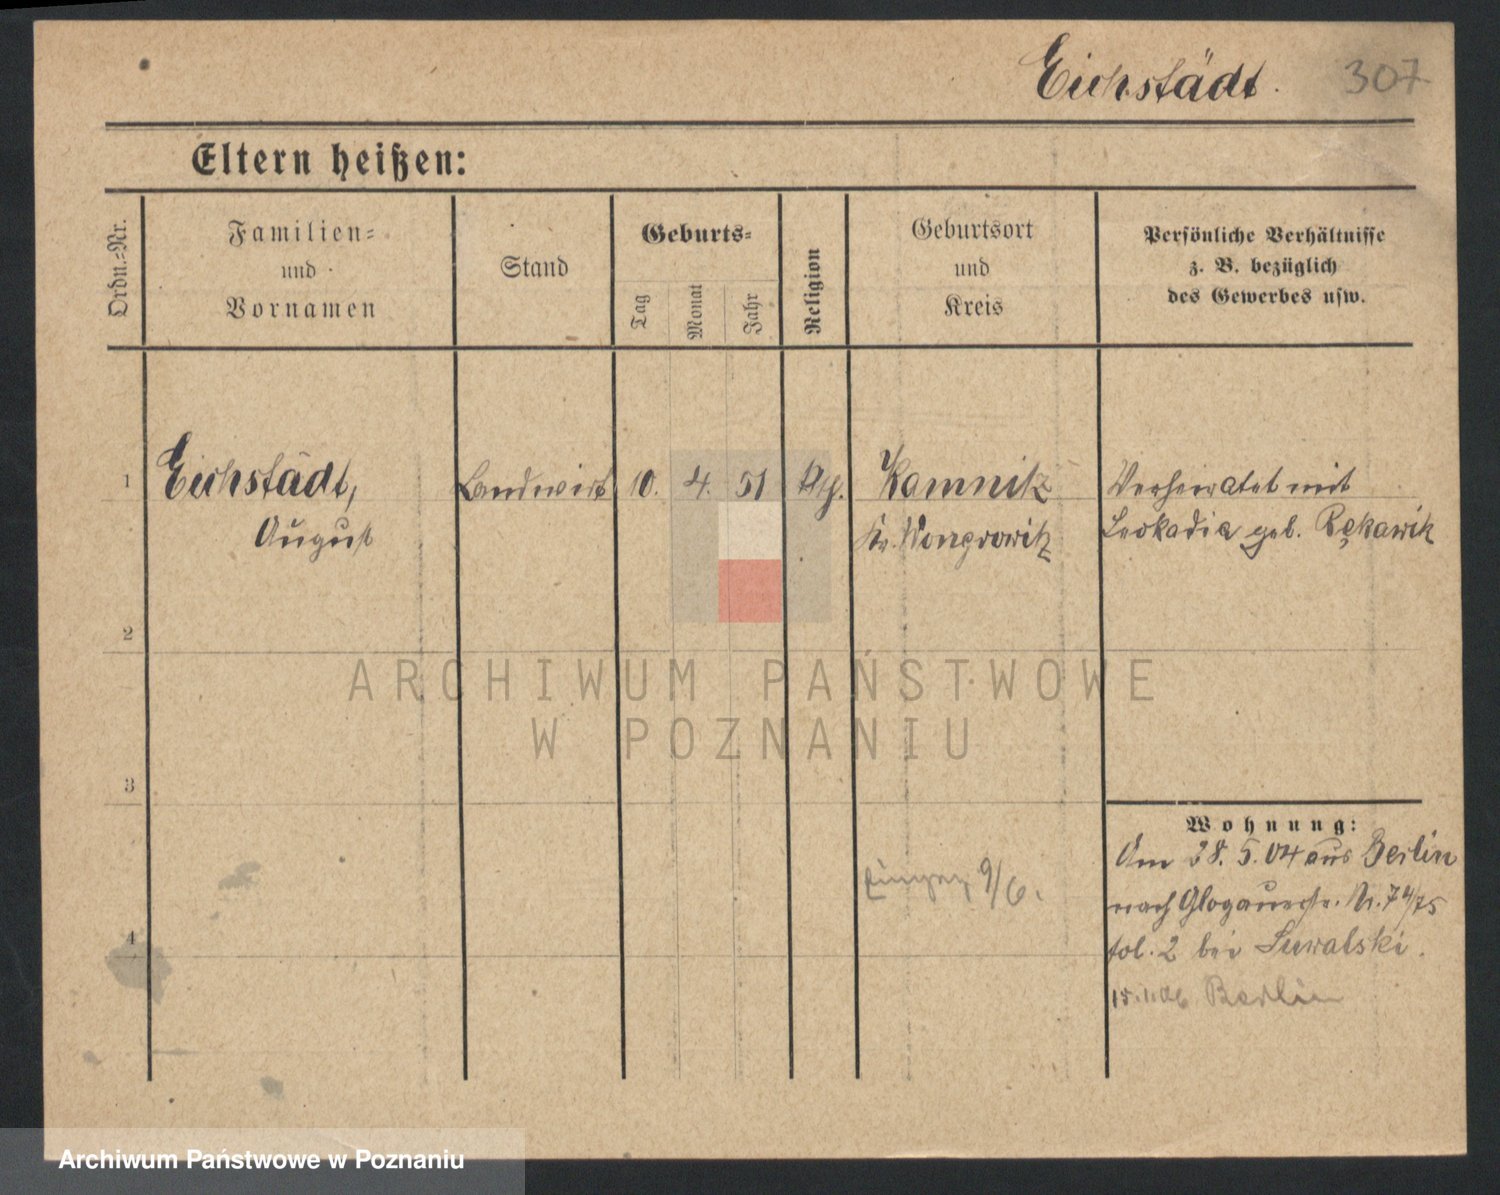 Eichstädt. 307
Eltern heißen:
Ordn.-Nr.
Familien-
und
Vornamen
Stand
Geburts-
Tag
Monat
Jahr
Religion
Geburtsort
und
Kreis
Persönliche Verhältnisse
z. B. bezüglich
des Gewerbes usw.
1 Eichstädt, Landwirt 10. 4. 51 Kamnitz Verheiratet mit
August Kr. Wongrowitz Leokadia geb. Rękawik
2
ARCHIWUM PAŃSTWOWE
W POZNANIU
3
Wohnung:
Am 28. 5. 04 aus Berlin
9/6.
nach Glogauerstr. Nr. 74/75
4
fol. 2 bei Suwalski.
Berlin
Archiwum Państwowe w Poznaniu